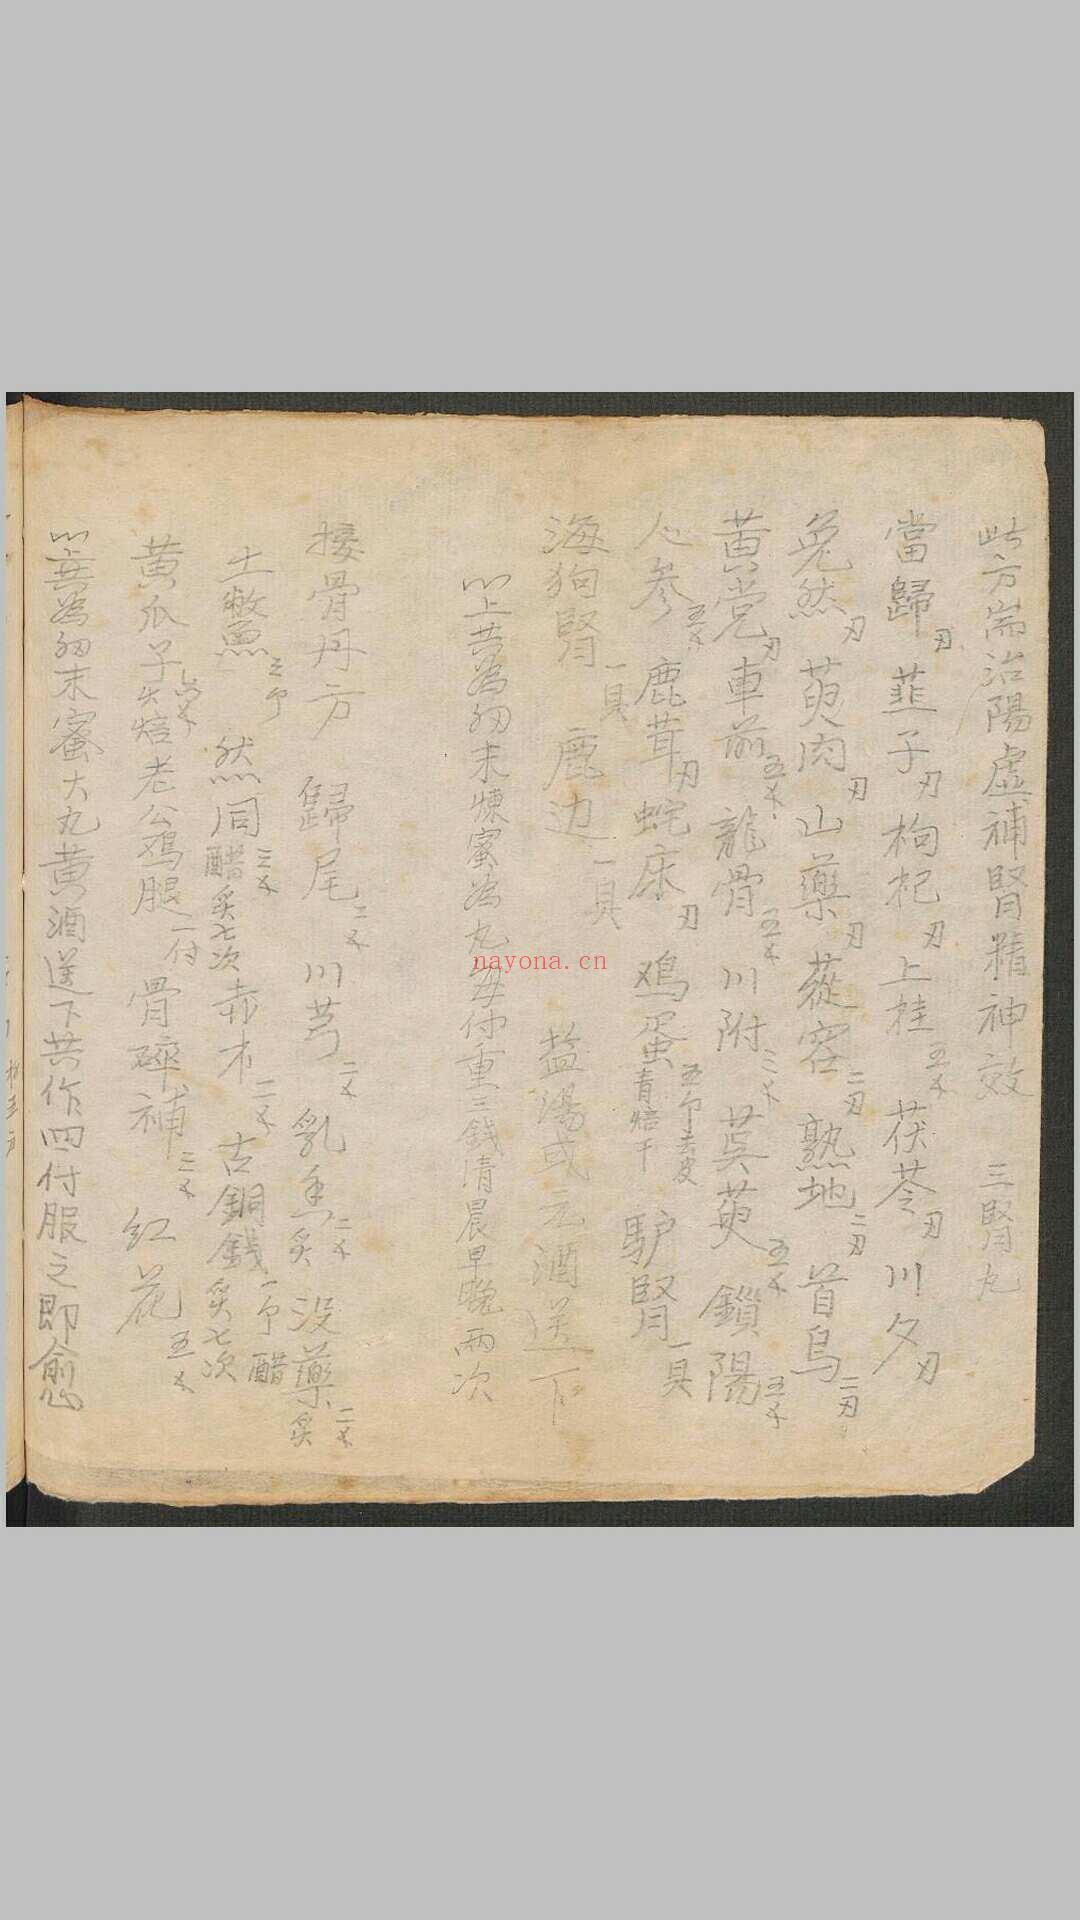 此方耑治陽虛補腎精神效 三腎丸
當歸刃 韮子刃 枸杞刃 上桂五个 茯苓刃 川夕刃
兔然刃 萸肉刃 山藥刃 蓯容二刃 熟地二刃 首烏二刃
黃党刃 車前五个 龍骨五个 川附三个 吳萸五个 鎖陽五个
人參五个 鹿茸刃 蛇床刃 鸡蛋五个去皮青焙干 驴腎一具
海狗腎一具 鹿边一具 盐湯或元酒送下
以上共為細末煉蜜為丸每付重三錢清晨早晚兩次
接骨丹方 歸尾二个 川芎二个 乳香二个炙 没藥二个炙
土鱉魚三个 然同三个醋炙七次 赤木二个 古銅錢一个醋炙七次
黃瓜子六个 火焙老公鸡腿一付 骨碎補三个 红花五个
以上共為細末蜜大丸黃酒送下共作四付服之即愈
nayona.cn